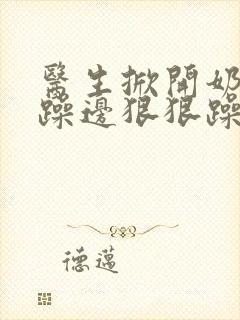 醫生掀開奶
躁邊狠狠躁
德邁